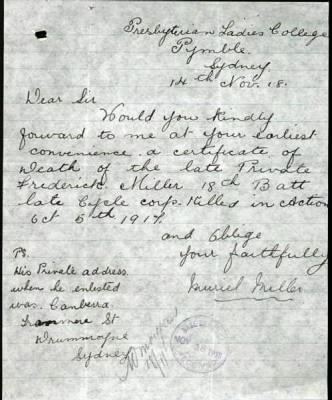 Presbyterian Ladies College
Pymble.
Sydney
14th Nov. 18.
Dear Sir
Would you kindly
forward to me at your earliest
convenience a certificate of
Death of the late Private
Frederick Miller 18th Batt
late Cycle corps. Killed in Action
Oct 5th 1917.
and Oblige
Your faithfully
Muriel Miller
PS.
His Private address
when he enlisted
was. Canberra
Tranmere St
Drummoyne
Sydney